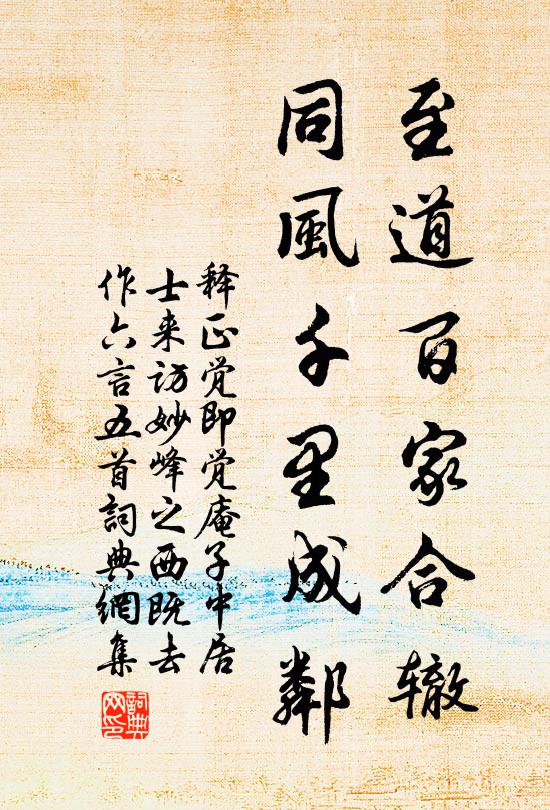 至道百家合辙
同風千里成鄰
释正觉即觉庵子中居
士来访妙峰之西既去
作六言五首詞典網集
詞典
网印